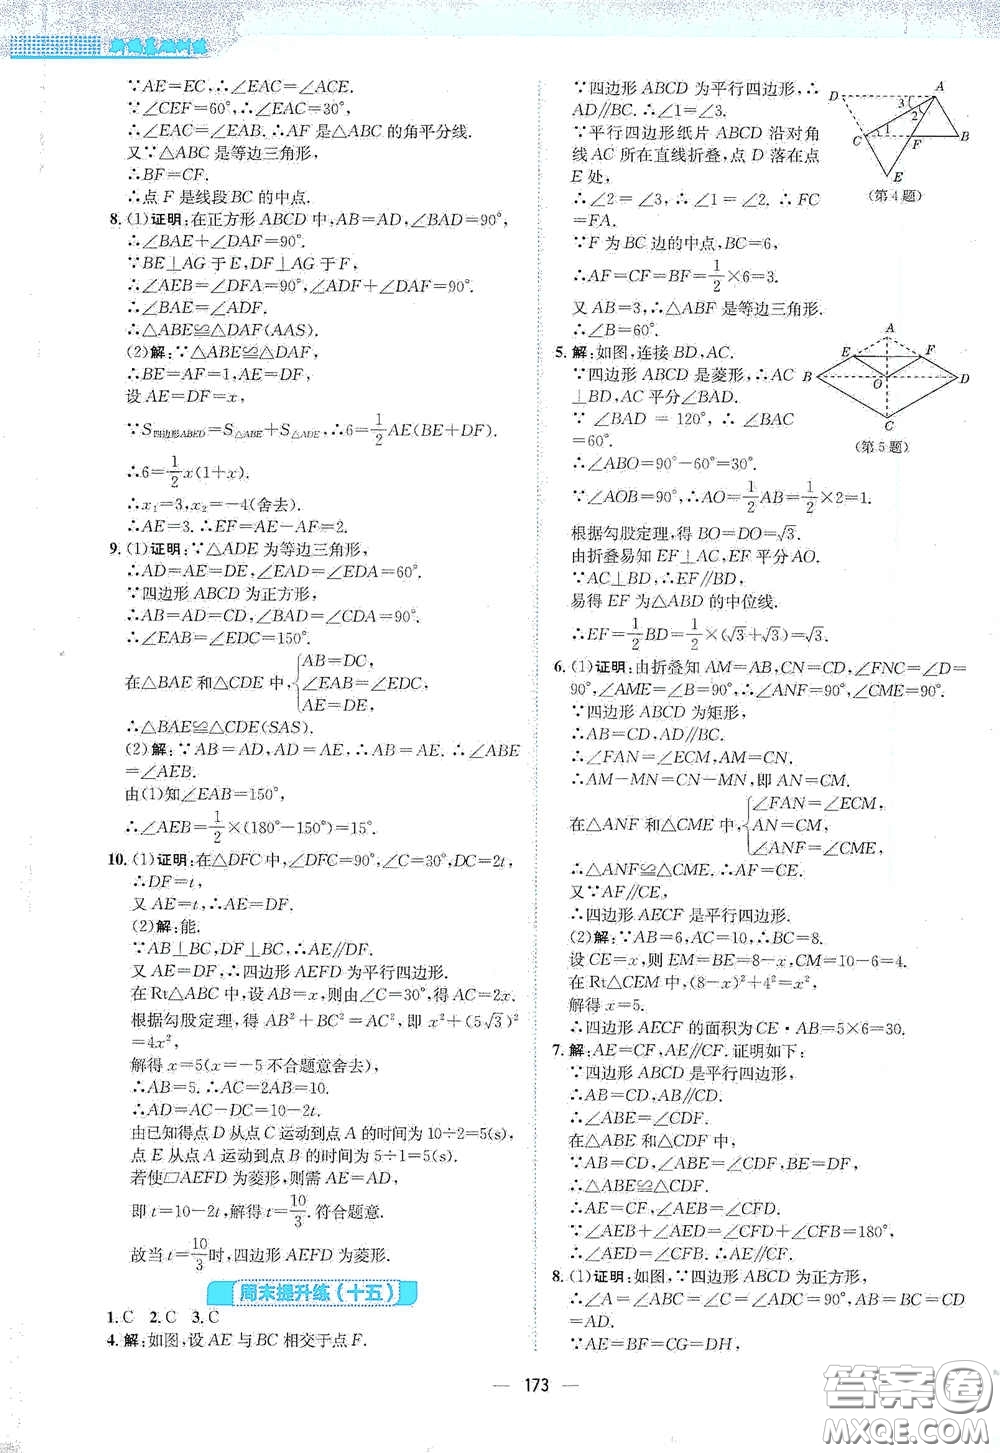 新课基础训练
∵AE=EC,∴∠EAC=∠ACE.
∵∠CEF=60°,∴∠EAC=30°.
∴∠EAC=∠EAB.∴AF是△ABC的角平分线.
又∵△ABC是等边三角形,
∴BF=CF.
∴点F是线段BC的中点.
8.(1)证明:在正方形ABCD中,AB=AD,∠BAD=90°,
∴∠BAE+∠DAF=90°.
∵BE⊥AG于E,DF⊥AG于F,
∴∠AEB=∠DFA=90°,∠ADF+∠DAF=90°.
∴∠BAE=∠ADF.
∴△ABE≌△DAF(AAS).
(2)解:∵△ABE≌△DAF,
∴BE=AF=1,AE=DF.
设AE=DF=x,
∵S四边形ABED=S△ABE+S△ADE,∴6=1/2AE(BE+DF).
∴6=1/2x(1+x).
∴x₁=3,x₂=-4(舍去).
∴AE=3.∴EF=AE-AF=2.
9.(1)证明:∵△ADE为等边三角形,
∴AD=AE=DE,∠EAD=∠EDA=60°.
∵四边形ABCD为正方形,
∴AB=AD=CD,∠BAD=∠CDA=90°.
∴∠EAB=∠EDC=150°.
在△BAE和△CDE中,{AB=DC,
∠EAB=∠EDC,
AE=DE,
∴△BAE≌△CDE(SAS).
(2)解:∵AB=AD,AD=AE,∴AB=AE.∴∠ABE
=∠AEB.
由(1)知∠EAB=150°,
∴∠AEB=1/2×(180°-150°)=15°.
10.(1)证明:在△DFC中,∠DFC=90°,∠C=30°,DC=2t,
∴DF=t,
又AE=t,∴AE=DF.
(2)解:能.
∵AB⊥BC,DF⊥BC,∴AE∥DF.
又AE=DF,∴四边形AEFD为平行四边形.
在Rt△ABC中,设AB=x,则由∠C=30°,得AC=2x.
根据勾股定理,得AB²+BC²=AC²,即x²+(5√3)²
=4x²,
解得x=5(x=-5不合题意舍去).
∴AB=5.∴AC=2AB=10.
∴AD=AC-DC=10-2t.
由已知得点D从点C运动到点A的时间为10÷2=5(s),
点E从点A运动到点B的时间为5÷1=5(s).
若使▱AEFD为菱形,则需AE=AD,
即t=10-2t,解得t=10/3.符合题意.
故当t=10/3时,四边形AEFD为菱形.
周末提升练(十五)
1.C 2.C 3.C
4.解:如图,设AE与BC相交于点F.
∵四边形ABCD为平行四边形,∴
AD∥BC.∴∠1=∠3.
∵平行四边形纸片ABCD沿对角
线AC所在直线折叠,点D落在点
E处,
∴∠2=∠3,∴∠1=∠2.∴FC
=FA.
∵F为BC边的中点,BC=6,
∴AF=CF=BF=1/2×6=3.
又AB=3,∴△ABF是等边三角形.
∴∠B=60°.
D A 3 2 C 1 F B E
(第4题)
5.解:如图,连接BD,AC.
∵四边形ABCD是菱形,∴AC
⊥BD,AC平分∠BAD.
∵∠BAD=120°,∴∠BAC
=60°.
∴∠ABO=90°-60°=30°.
∵∠AOB=90°,∴AO=1/2AB=1/2×2=1.
根据勾股定理,得BO=DO=√3.
由折叠易知EF⊥AC,EF平分AO.
∵AC⊥BD,∴EF∥BD.
易得EF为△ABD的中位线.
∴EF=1/2BD=1/2×(√3+√3)=√3.
A E F B O D C
(第5题)
6.(1)证明:由折叠知AM=AB,CN=CD,∠FNC=∠D=
90°,∠AME=∠B=90°,∴∠ANF=90°,∠CME=90°.
∵四边形ABCD为矩形,
∴AB=CD,AD∥BC.
∴∠FAN=∠ECM,AM=CN.
∴AM-MN=CN-MN,即AN=CM.
在△ANF和△CME中,{∠FAN=∠ECM,
AN=CM,
∠ANF=∠CME,
∴△ANF≌△CME.∴AF=CE.
又∵AF∥CE,
∴四边形AECF是平行四边形.
(2)解:∵AB=6,AC=10,∴BC=8.
设CE=x,则EM=BE=8-x,CM=10-6=4.
在Rt△CEM中,(8-x)²+4²=x²,
解得x=5.
∴四边形AECF的面积为CE·AB=5×6=30.
7.解:AE=CF,AE∥CF.证明如下:
∵四边形ABCD是平行四边形,
∴AB=CD,AB∥CD.
∴∠ABE=∠CDF.
在△ABE和△CDF中,
∵AB=CD,∠ABE=∠CDF,BE=DF,
∴△ABE≌△CDF.
∴AE=CF,∠AEB=∠CFD.
∵∠AEB+∠AED=∠CFD+∠CFB=180°,
∴∠AED=∠CFB.∴AE∥CF.
8.(1)证明:如图,∵四边形ABCD为正方形,
∴∠A=∠B=∠C=∠D=90°,AB=BC=CD
=DA.
∵AE=BF=CG=DH,
173
答案圈
MXQE.COM